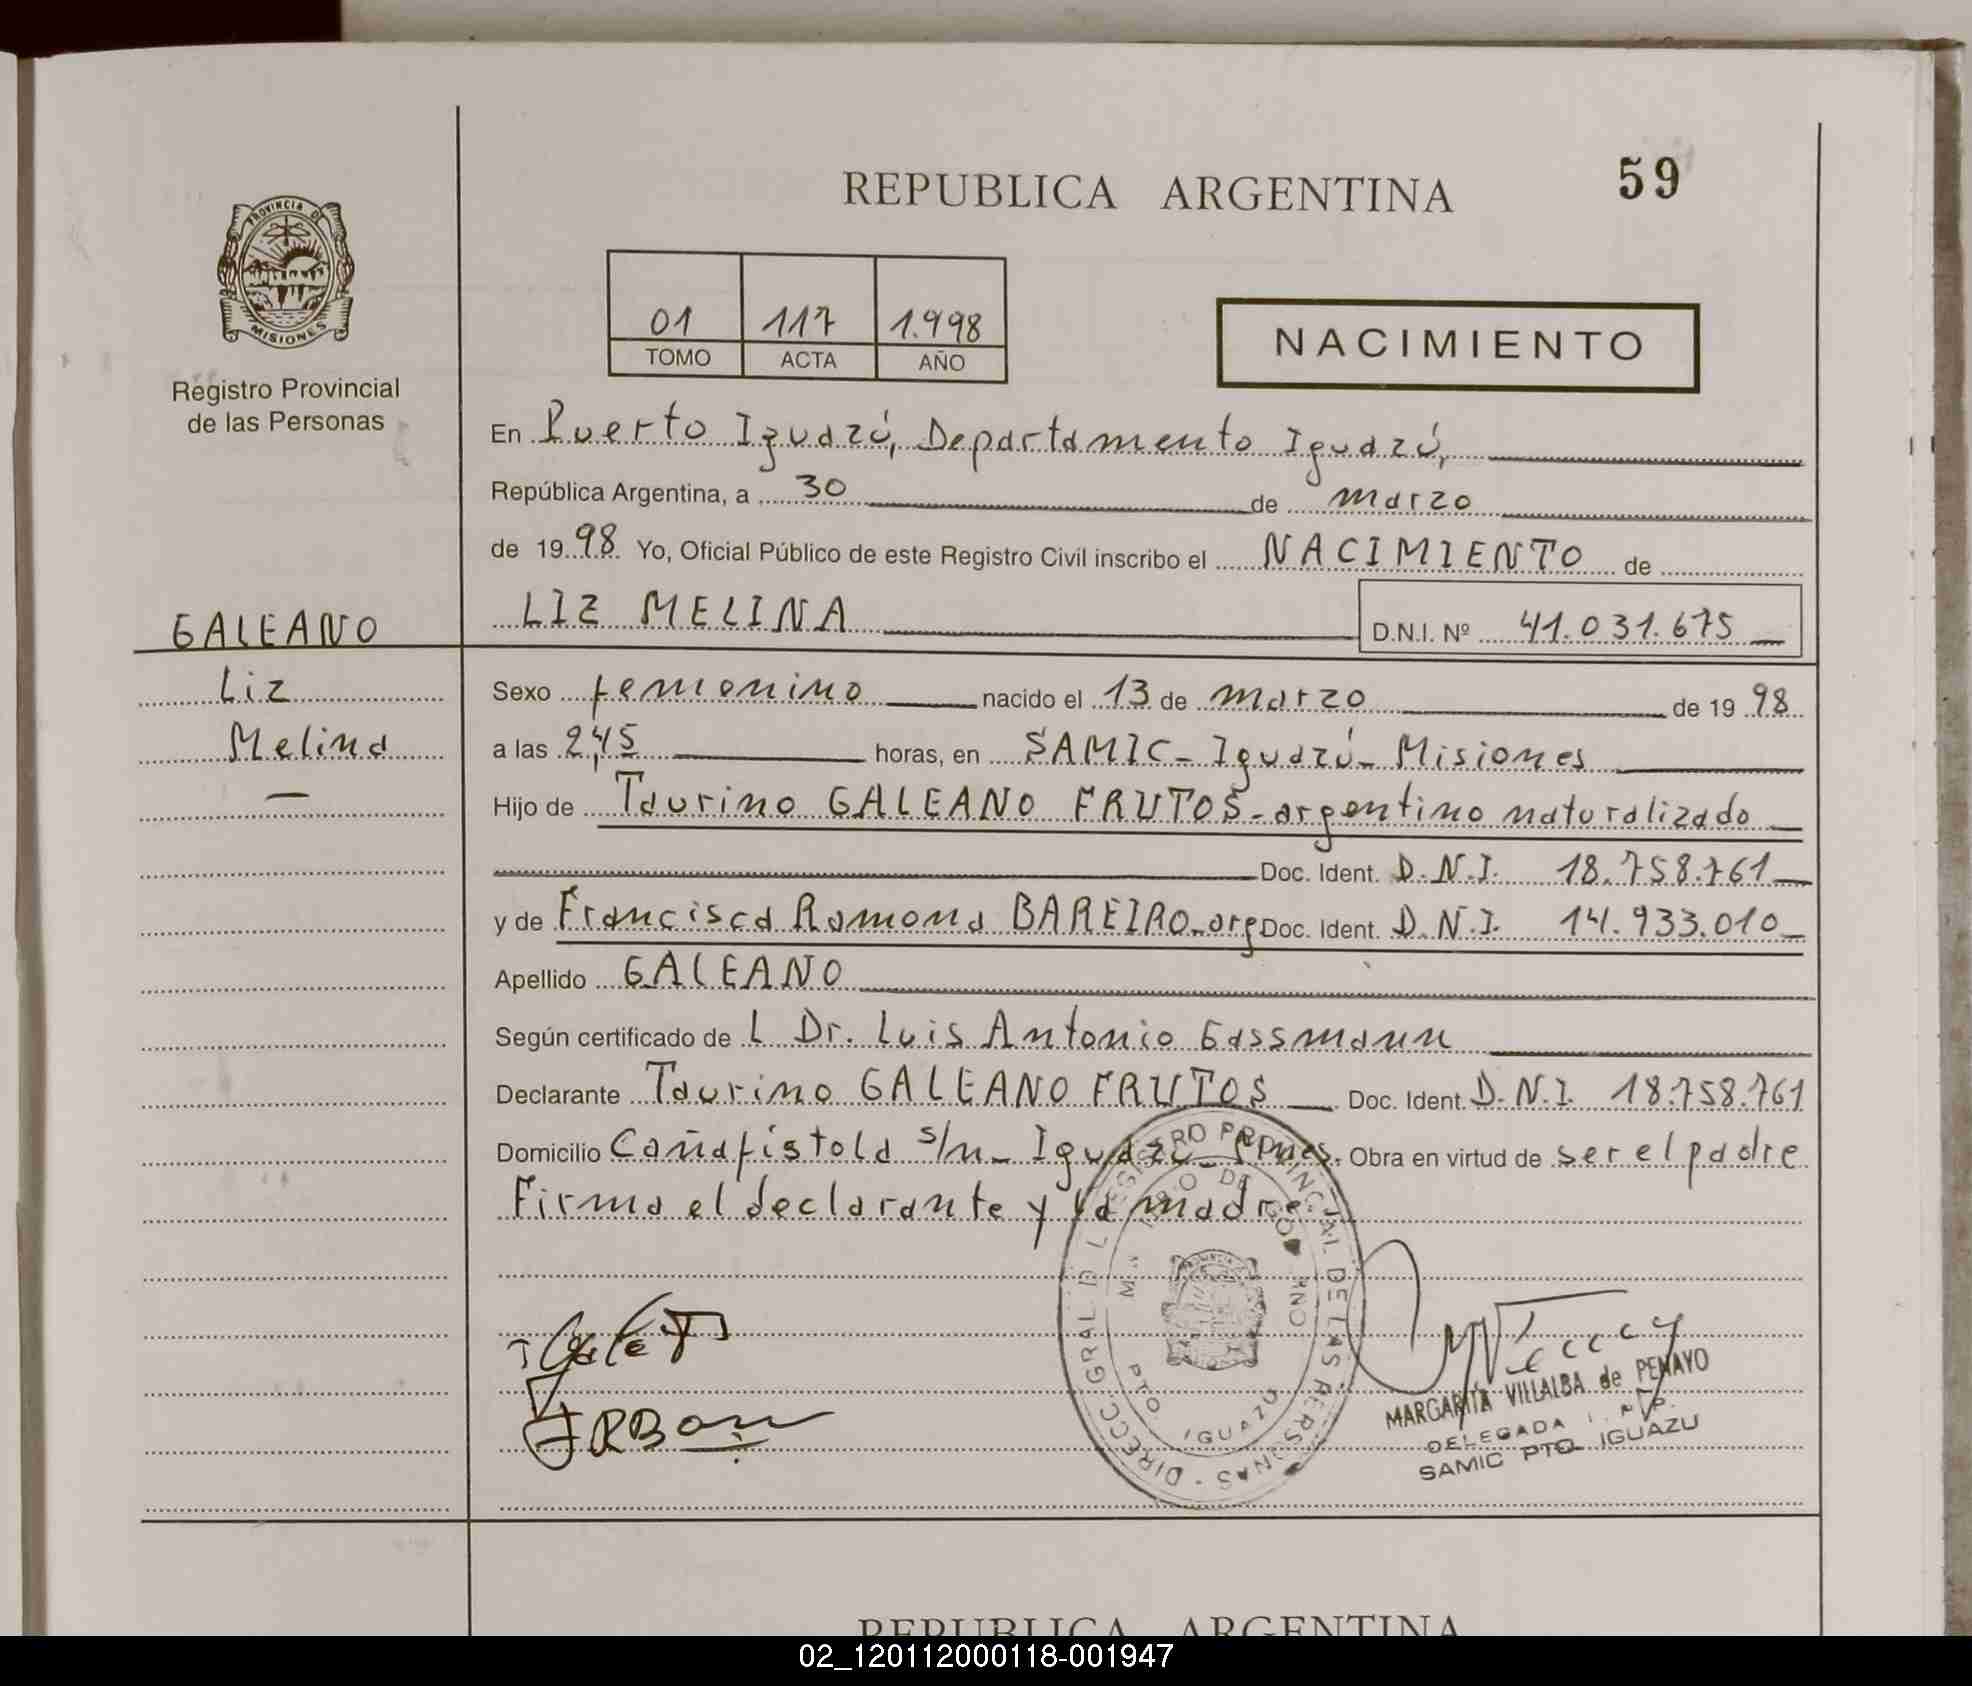 REPUBLICA ARGENTINA
59
PROVINCIA DE
MISIONES
Registro Provincial
de las Personas
01 117 1.998
TOMO ACTA AÑO
NACIMIENTO
En Puerto Iguazú, Departamento Iguazú,
República Argentina, a 30 de marzo
de 1998 Yo, Oficial Público de este Registro Civil inscribo el NACIMIENTO de
LIZ MELINA D.N.I. Nº 41.031.675
GALEANO
Liz
Melina
Sexo femenino nacido el 13 de marzo de 1998
a las 2,45 horas, en SAMIC - Iguazú - Misiones
Hijo de Taurino GALEANO FRUTOS - argentino naturalizado
Doc. Ident. D.N.I. 18.758.761
y de Francisca Ramona BAREIRO - arg Doc. Ident. D.N.I. 14.933.010
Apellido GALEANO
Según certificado de L Dr. Luis Antonio Gassmann
Declarante Taurino GALEANO FRUTOS Doc. Ident. D.N.I. 18.758.761
Domicilio Cañafistola s/n - Iguazú - Mnes. Obra en virtud de ser el padre
Firma el declarante y la madre
DIRECC. GRAL DEL REGISTRO PROVINCIAL DE LAS PERSONAS
MINISTERIO DE GOBIERNO
PTO. IGUAZU
MARGARITA VILLALBA de PENAYO
DELEGADA
SAMIC PTO. IGUAZU
REPUBLICA ARGENTINA
02_120112000118-001947